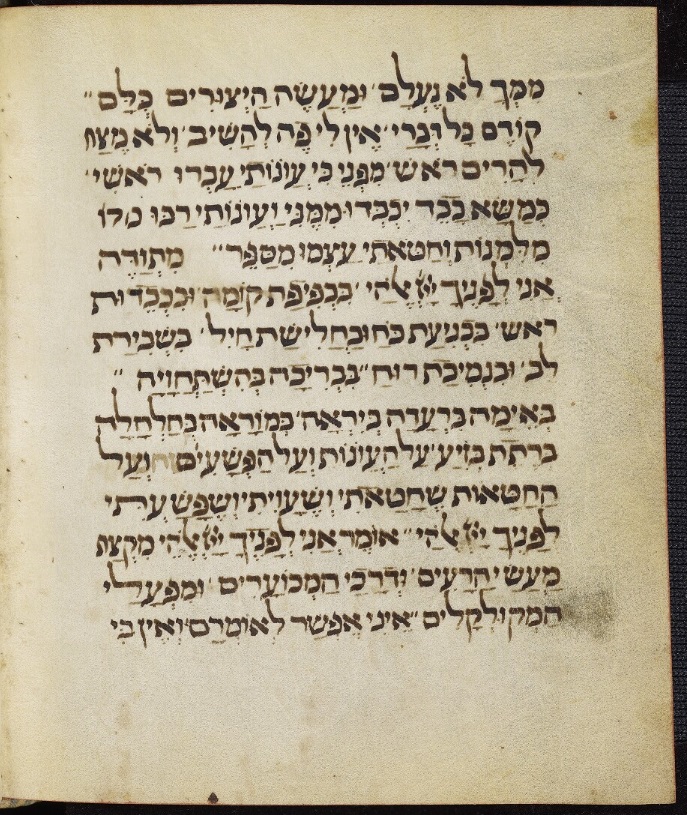 ממך לא נעלם ומעשה היצורים כלם
קודם כל דברי אין לי פה להשיב ולא מצח
להרים ראש מפני כי עונותי עברו ראשי
כמשא כבד יכבדו ממני ועונותי רבו
מלמנות וחטאתי עצמו מספר מתודה
אני לפניך אלהי בכפיפת קומה ובכבדות
ראש בכניעת כח ובחלישת חיל בשבירת
לב ובנמיכת רוח בבריכה בהשתחויה
באימה ברעדה ביראה במוראה בחלחלה
ברתת בזיע על העונות ועל הפשעים ועל
החטאות שחטאתי ושעויתי ושפשעתי
לפניך אלהי אומר אני לפניך אלהי מקצת
מעשי הרעים ודרכי המכוערים ומפעלי
המקולקלים איני אפשר לאומרם ואין בי